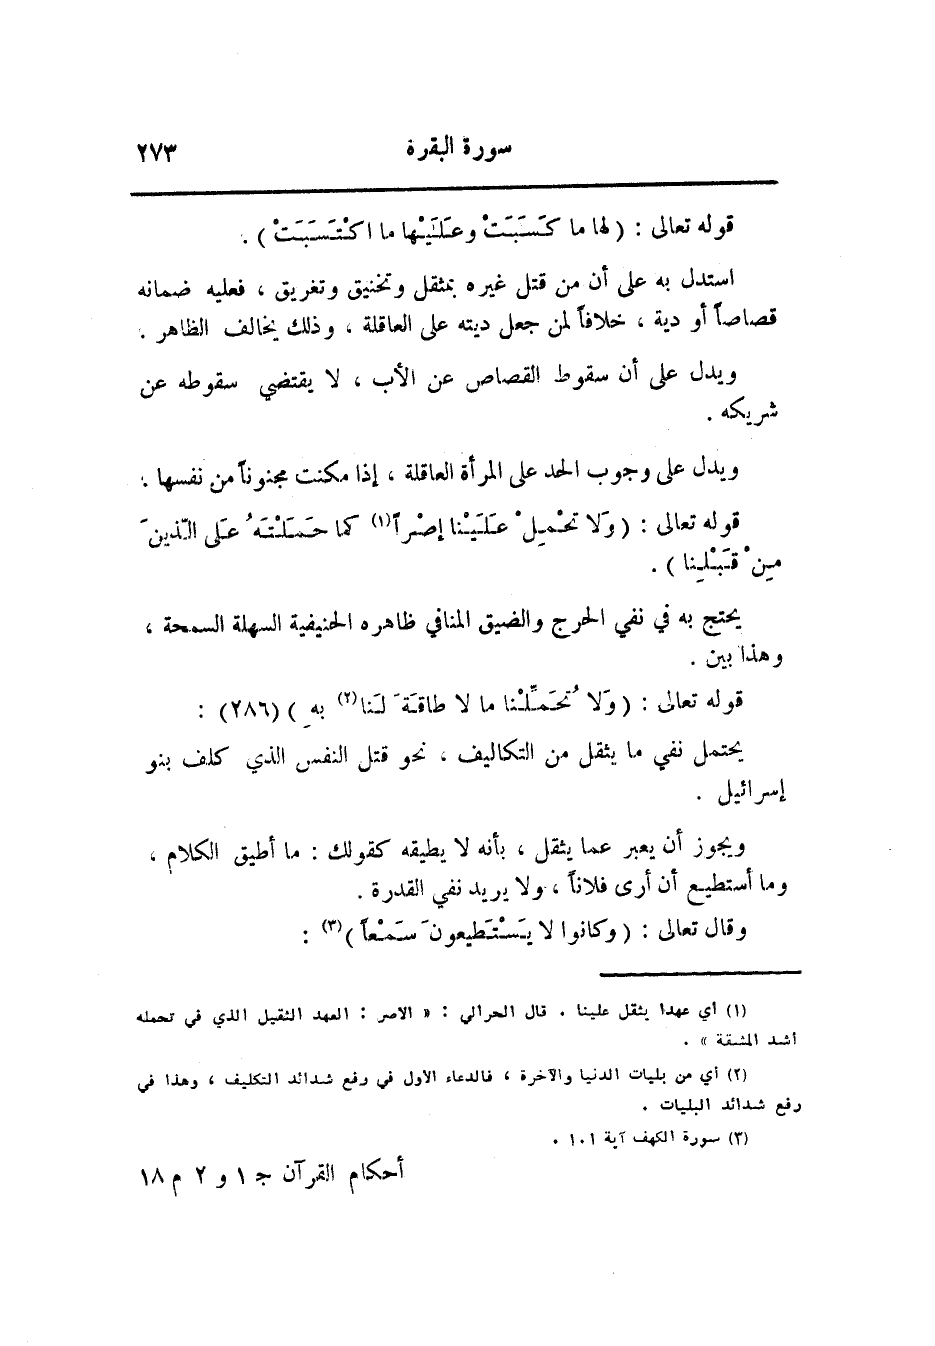 سورة البقرة ٢٧٣
قوله تعالى : ( لها ما كَسَبَتْ وعَلَيْها ما اكْتَسَبَتْ ) .
استدل به على أن من قتل غيره بمثقل وتخنيق وتغريق ، فعليه ضمانه
قصاصاً أو دية ، خلافاً لمن جعل ديته على العاقلة ، وذلك يخالف الظاهر .
ويدل على أن سقوط القصاص عن الأب ، لا يقتضي سقوطه عن
شريكه .
ويدل على وجوب الحد على المرأة العاقلة ، إذا مكنت مجنوناً من نفسها .
قوله تعالى : ( وَلا تحْمِلْ عَلَيْنا إصْراً (١) كما حَمَلْتَهُ عَلى الّذينَ
مِنْ قَبْلِنا ) .
يحتج به في نفي الحرج والضيق المنافي ظاهره الحنيفية السهلة السمحة ،
وهذا بين .
قوله تعالى : ( وَلا تُحَمِّلْنا ما لا طاقَةَ لَنا (٢) بهِ ) (٢٨٦) :
يحتمل نفي ما يثقل من التكاليف ، نحو قتل النفس الذي كلف بنو
إسرائيل .
ويجوز أن يعبر عما يثقل ، بأنه لا يطيقه كقولك : ما أطيق الكلام ،
وما أستطيع أن أرى فلاناً ، ولا يريد نفي القدرة .
وقال تعالى : ( وكانوا لا يَسْتَطيعونَ سَمْعاً ) (٣) :
(١) أي عهدا يثقل علينا . قال الحرالي : « الاصر : العهد الثقيل الذي في تحمله
أشد المشقة » .
(٢) أي من بليات الدنيا والآخرة ، فالدعاء الاول في رفع شدائد التكليف ، وهذا في
رفع شدائد البليات .
(٣) سورة الكهف آية ١٠١ .
أحكام القرآن جـ ١ و ٢ م ١٨